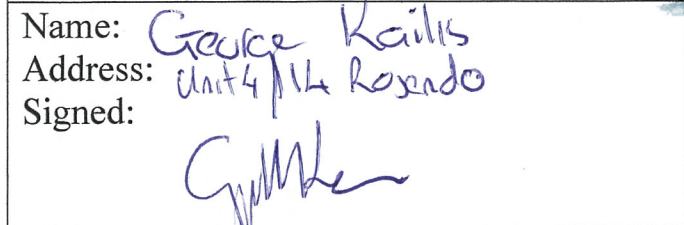 Name: George Kailis
Address: Unit 4/14 Rosendo
Signed: